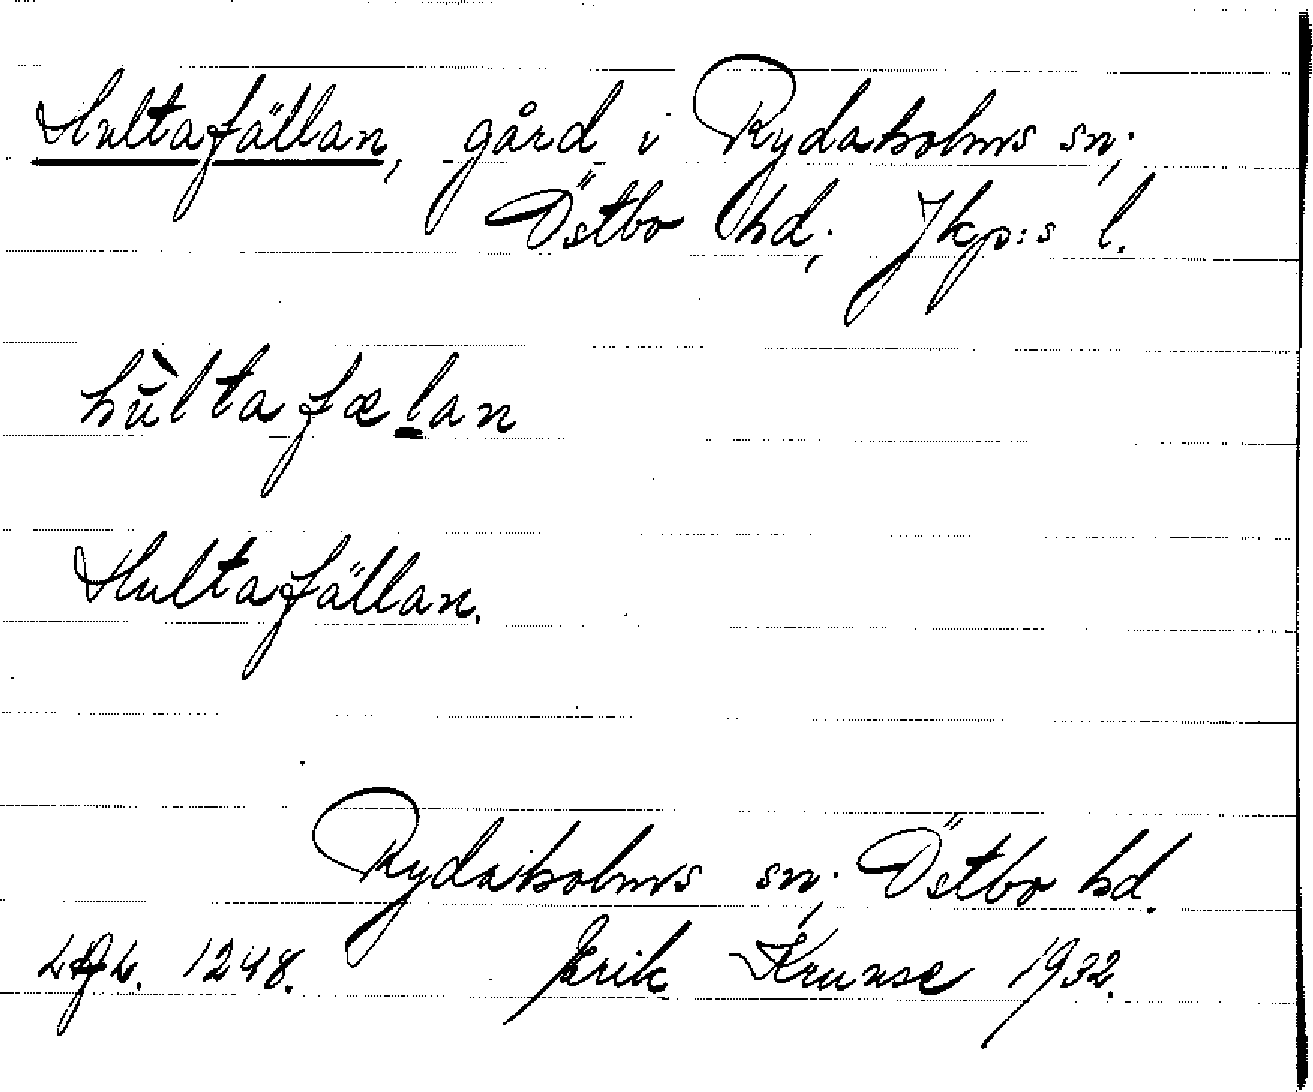 Hultafällan, gård i Rydaholms sn;
Östbo hd; Jkp:s l.
hùltafælan
Hultafällan.
Rydaholms sn; Östbo hd.
1248. Erik Krunse 1932.